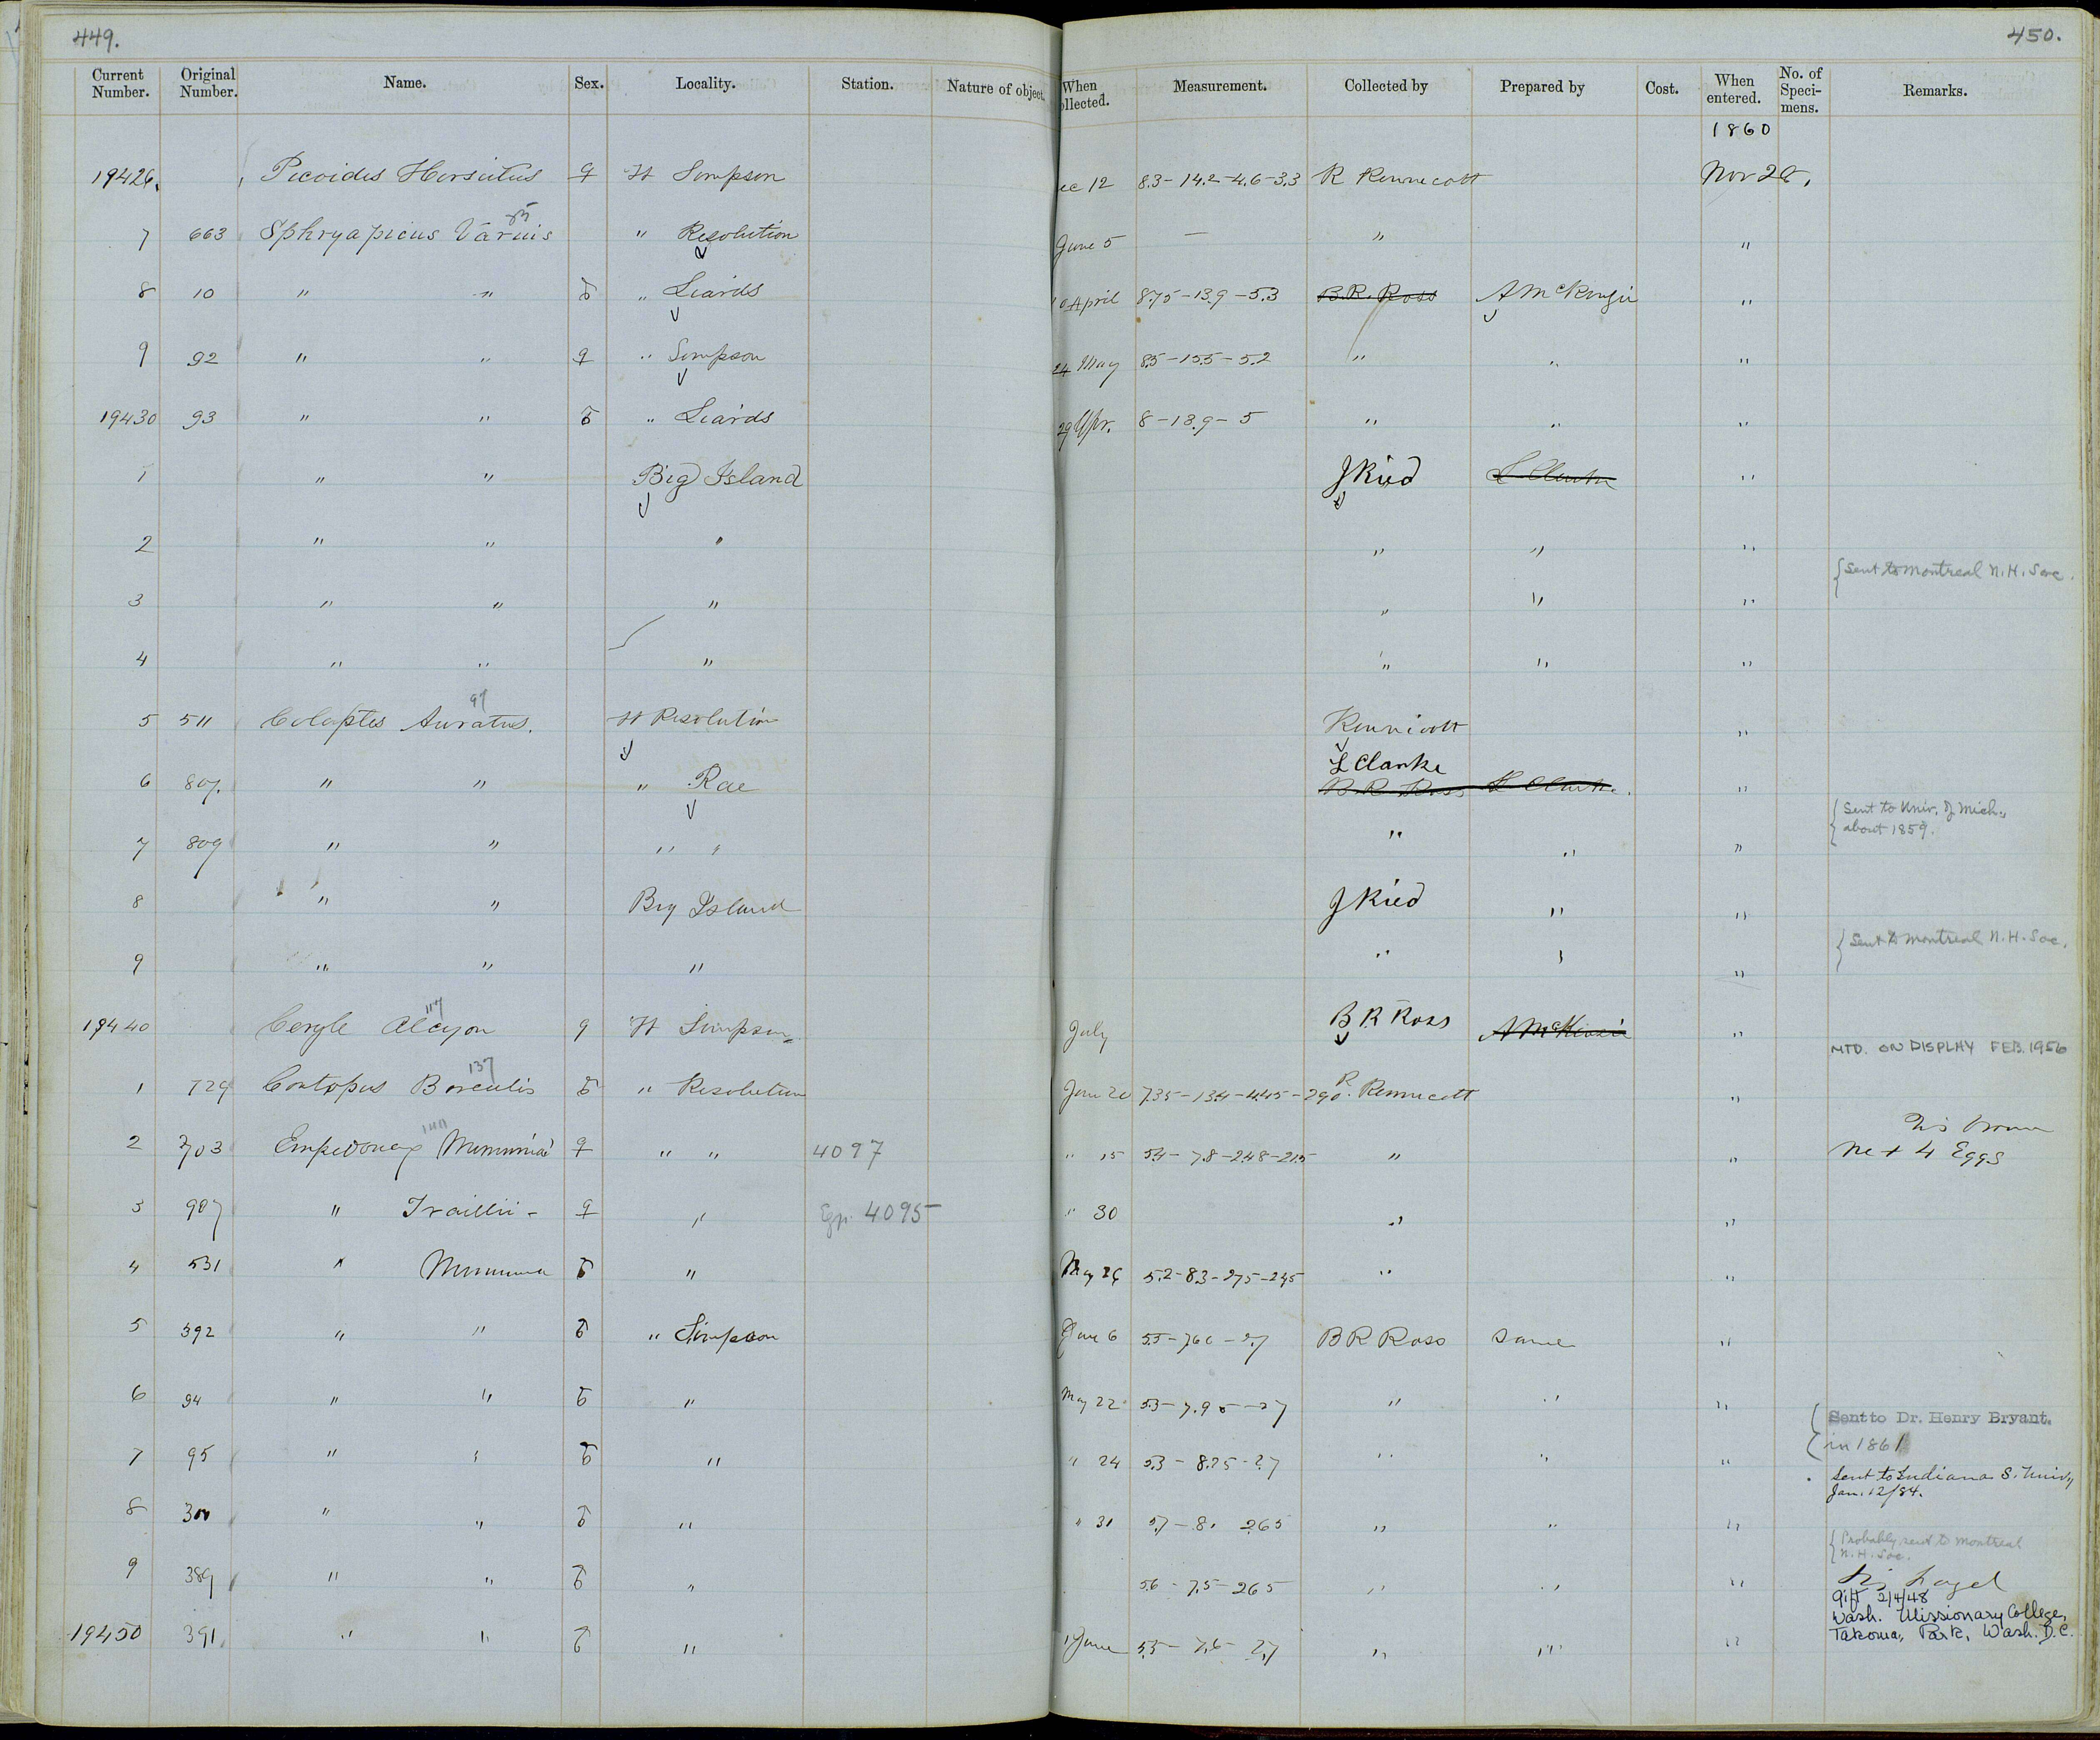 449.
450.
Current Number. Original Number. Name. Sex. Locality. Station. Nature of object. When ollected. Measurement. Collected by Prepared by Cost. When entered. No. of Speci- mens. Remarks.
1860
19426. Picoides Hirsutus ♀ Ft Simpson ec 12 8.3-14.2-4.6-3.3 R Kennicott Nov 28.
85
7 663 Sphryapicus Varius " Resolution June 5 — " "
8 10 " " ♂ " Liards 10 April 8.75-13.9-5.3 B.R. Ross A McKenzie "
9 92 " " ♀ " Simpson 24 May 8.5-15.5-5.2 " " "
19430 93 " " ♂ " Liards 29 Apr. 8-13.9-5 " " "
1 " " Big Island J Ried L Clarke "
2 " " " " " "
{ Sent to Montreal N.H. Soc.
3 " " " " " "
4 " " " " " "
97
5 511 Colaptes Auratus. Ft Resolution Kennicott "
L Clarke
6 807. " " " Rae B R Ross L Clarke "
{ Sent to Univ. of Mich.,
about 1859.
7 809 " " " " " " "
8 " " Big Island J Ried " "
{ Sent to Montreal N.H. Soc.
9 " " " " " "
117
19440 Ceryle Alcyon ♀ Ft Simpson July B R Ross A McKenzie "
MTD. ON DISPLAY FEB. 1956
137
1 729 Contopus Borealis ♂ " Resolution June 20 7.35-13.4-4.45-2.90. R. Kennicott "
2 703 Empedonax Minimus ♀ " " 4097 " 15 5.4-7.8-2.48-2.15 " " Ne + 4 Eggs
3 907 " Traillii - ♀ " 4095 " 30 " "
4 531 " Minimus ♂ " May 26 5.2-8.3-2.75-2.45 " "
5 392 " " ♂ " Simpson June 6 5.5-7.60-2.7 B R Ross Same "
6 94 " " ♂ " May 22 5.3-7.95-2.7 " " "
{ Sent to Dr. Henry Bryant.
in 1861
7 95 " " ♂ " " 24 5.3-8.25-2.7 " " "
Sent to Indiana S. Univ.,
Jan. 12/84.
8 300 " " ♂ " " 31 5.7-8.1 2.65 " " "
{ Probably sent to Montreal
N.H. Soc.
9 389 " " ♂ " 5.6-7.5-2.65 " " "
Gift 2/4/48
Wash. Missionary College,
Takoma, Park, Wash. D.C.
19450 391 " " ♂ " 1 June 5.5-7.6-2.7 " " "